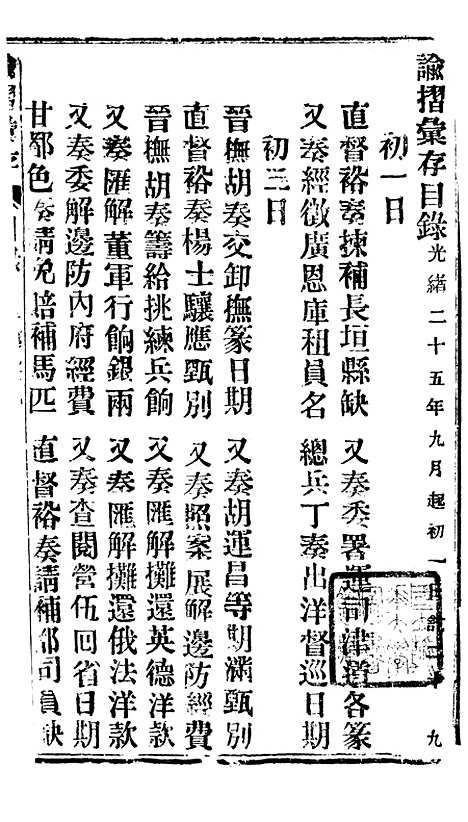 諭摺彙存目錄 光緒二十五年九月起初一
初一日
直督裕奏揀補長垣縣缺 又奏委署運司津道各篆
又奏經徵廣恩庫租員名 總兵丁奏出洋督巡日期
初三日
晉撫胡奏交卸撫篆日期 又奏胡運昌等期滿甄別
直督裕奏楊士驤應甄別 又奏照案展解邊防經費
晉撫胡奏籌給挑練兵餉 又奏匯解攤還英德洋款
又奏匯解董軍行餉銀兩 又奏匯解攤還俄法洋款
又奏委解邊防內府經費 又奏查閱營伍回省日期
甘鄂色奏請免賠補馬匹 直督裕奏請補都司員缺
九